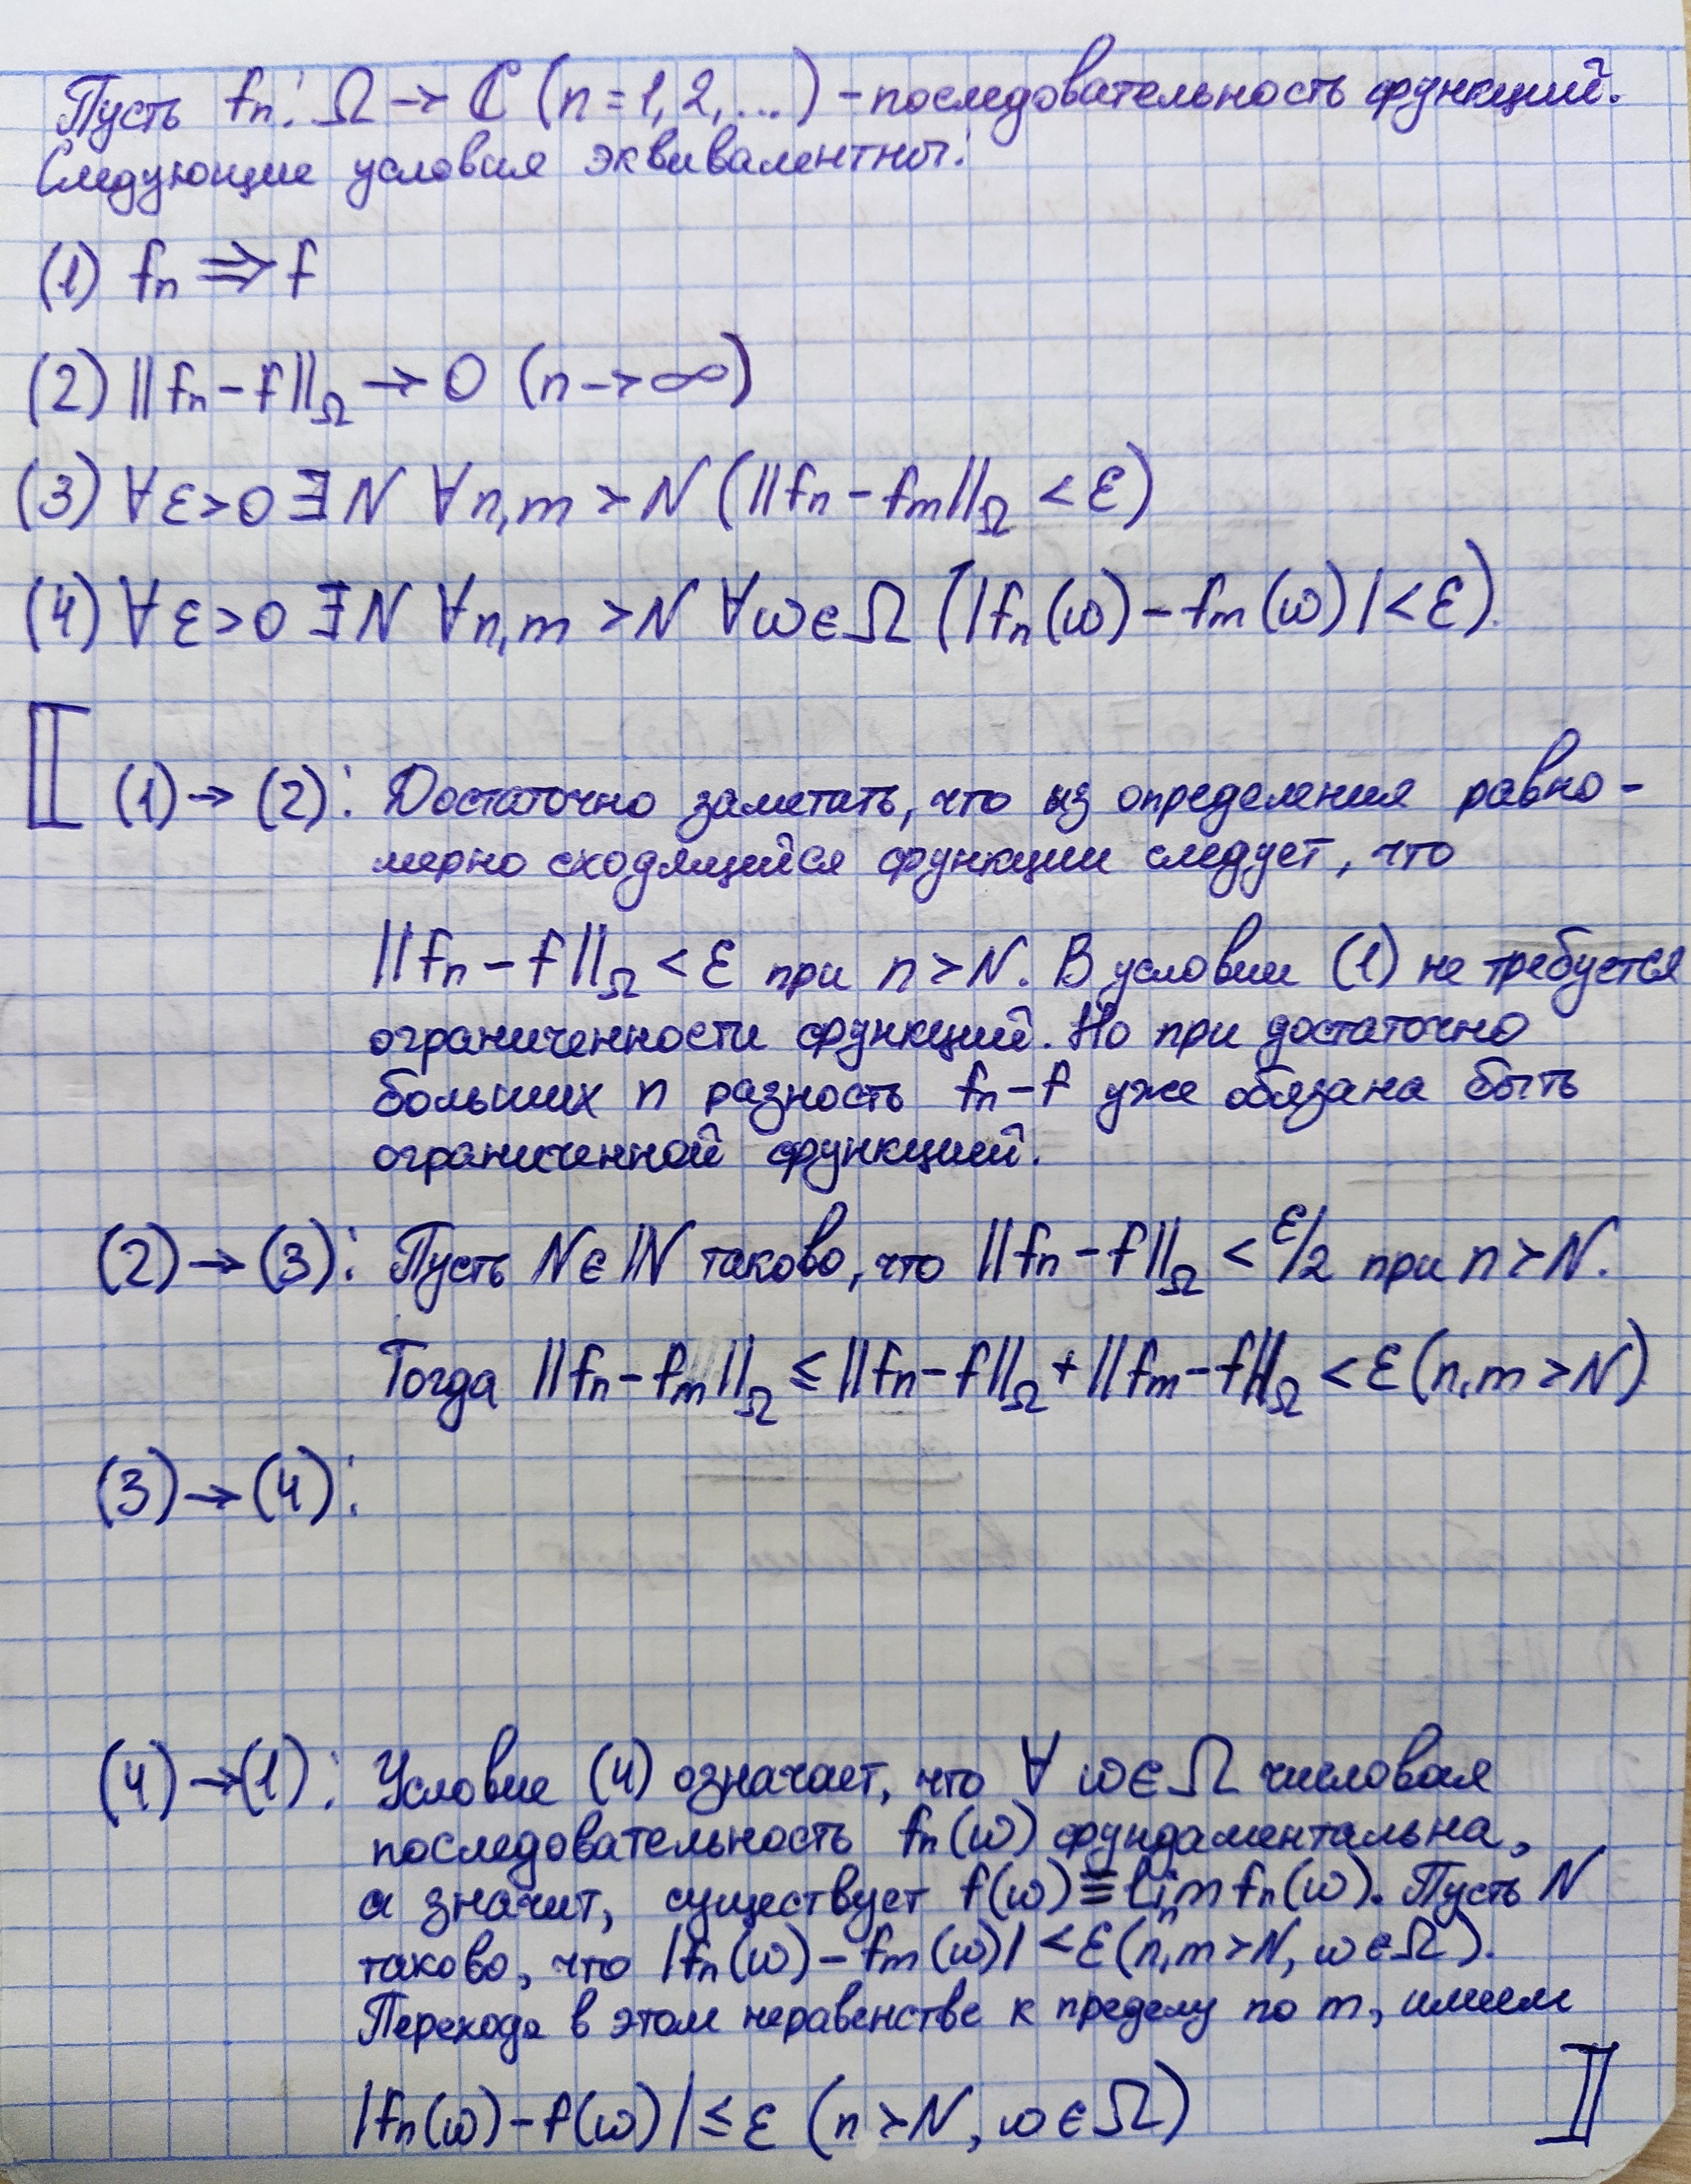 Пусть fₙ: Ω → ℂ (n = 1, 2, ...) – последовательность функций.
Следующие условия эквивалентны:
(1) fₙ ⇉ f
(2) ||fₙ – f||_Ω → 0 (n → ∞)
(3) ∀ε > 0 ∃N ∀n,m > N (||fₙ – fₘ||_Ω < ε)
(4) ∀ε > 0 ∃N ∀n,m > N ∀ω ∈ Ω (|fₙ(ω) – fₘ(ω)| < ε).
(1) → (2): Достаточно заметать, что из определения равно-
мерно сходящейся функции следует, что
||fₙ – f||_Ω < ε при n > N. В условии (1) не требуется
ограниченности функций. Но при достаточно
больших n разность fₙ – f уже обязана быть
ограниченной функцией.
(2) → (3): Пусть N ∈ ℕ таково, что ||fₙ – f||_Ω < ε/2 при n > N.
Тогда ||fₙ – fₘ||_Ω ≤ ||fₙ – f||_Ω + ||fₘ – f||_Ω < ε (n,m > N)
(3) → (4):
(4) → (1): Условие (4) означает, что ∀ ω ∈ Ω числовая
последовательность fₙ(ω) фундаментальна,
а значит, существует f(ω) ≡ limₙ fₙ(ω). Пусть N
таково, что |fₙ(ω) – fₘ(ω)| < ε (n,m > N, ω ∈ Ω).
Перехода в этом неравенстве к пределу по m, имеем
|fₙ(ω) – f(ω)| ≤ ε (n > N, ω ∈ Ω)